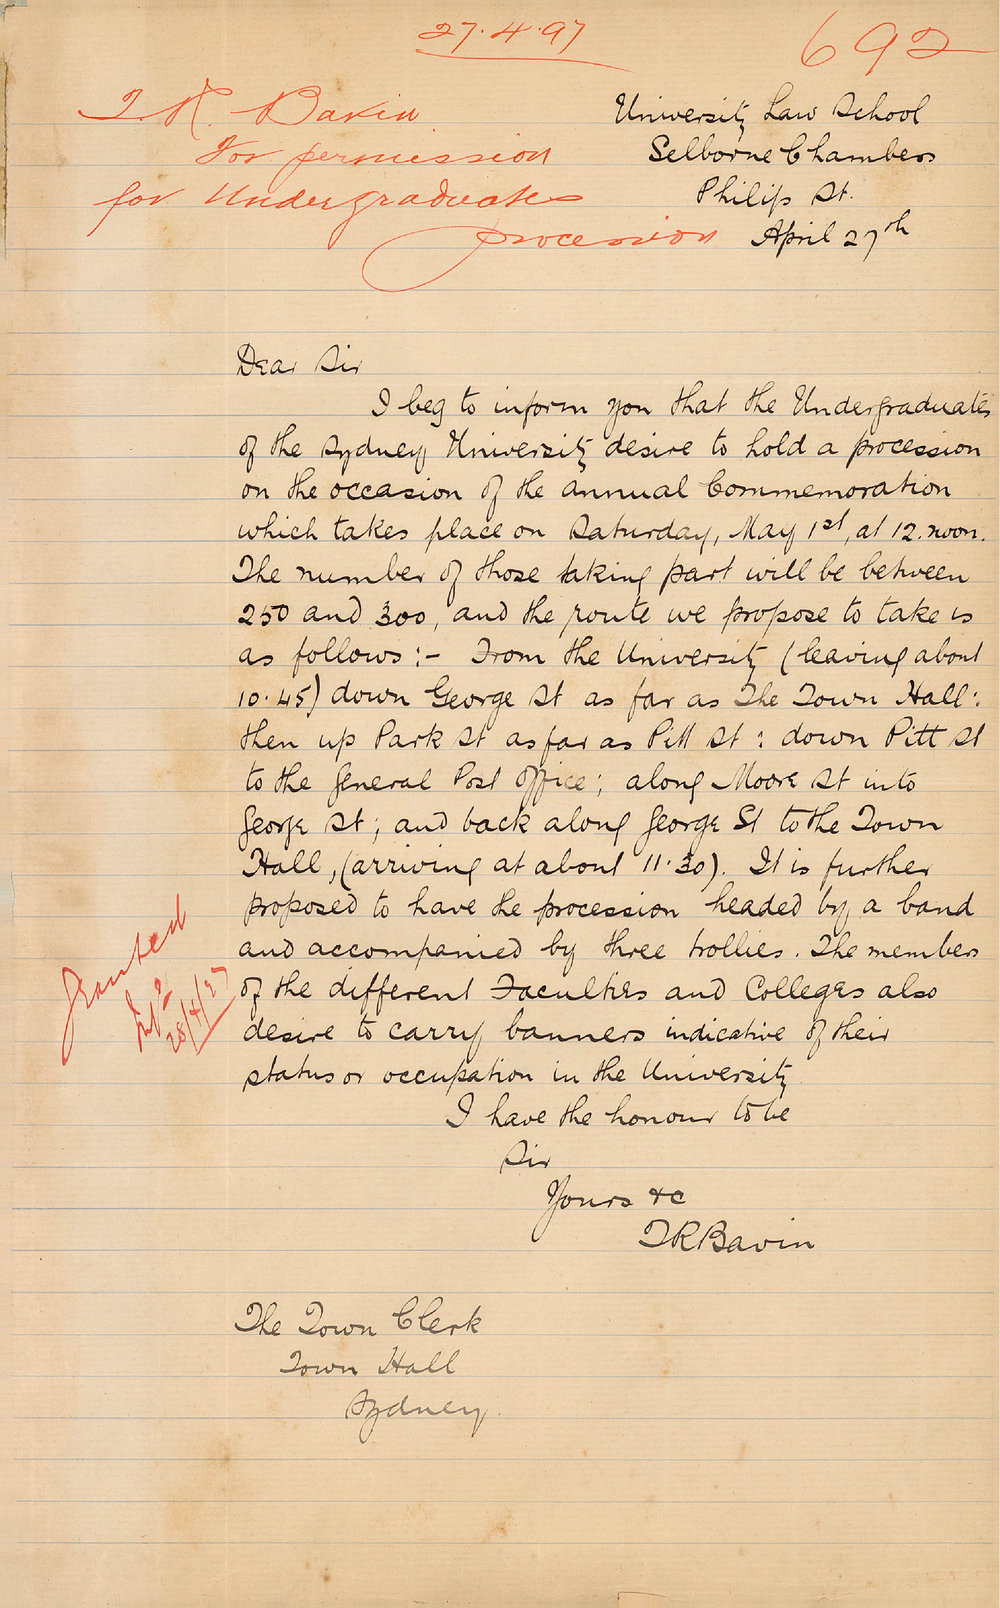 27.4.97
692
T. R. Bavin
For permission
for Undergraduates
procession
University Law School
Selborne Chambers
Philip St.
April 27th
Dear Sir
I beg to inform you that the Undergraduates
of the Sydney University desire to hold a procession
on the occasion of the annual Commemoration
which takes place on Saturday, May 1st, at 12.noon.
The number of those taking part will be between
250 and 300, and the route we propose to take is
as follows:- From the University (leaving about
10.45) down George St as far as The Town Hall:
then up Park St as far as Pitt St: down Pitt St
to the General Post Office; along Moore St into
George St; and back along George St to the Town
Hall, (arriving at about 11.30). It is further
proposed to have the procession headed by a band
and accompanied by three trollies. The members
of the different Faculties and Colleges also
desire to carry banners indicative of their
status or occupation in the University
I have the honour to be
Sir
Yours &c
TRBavin
Granted
28/4/97
The Town Clerk
Town Hall
Sydney.